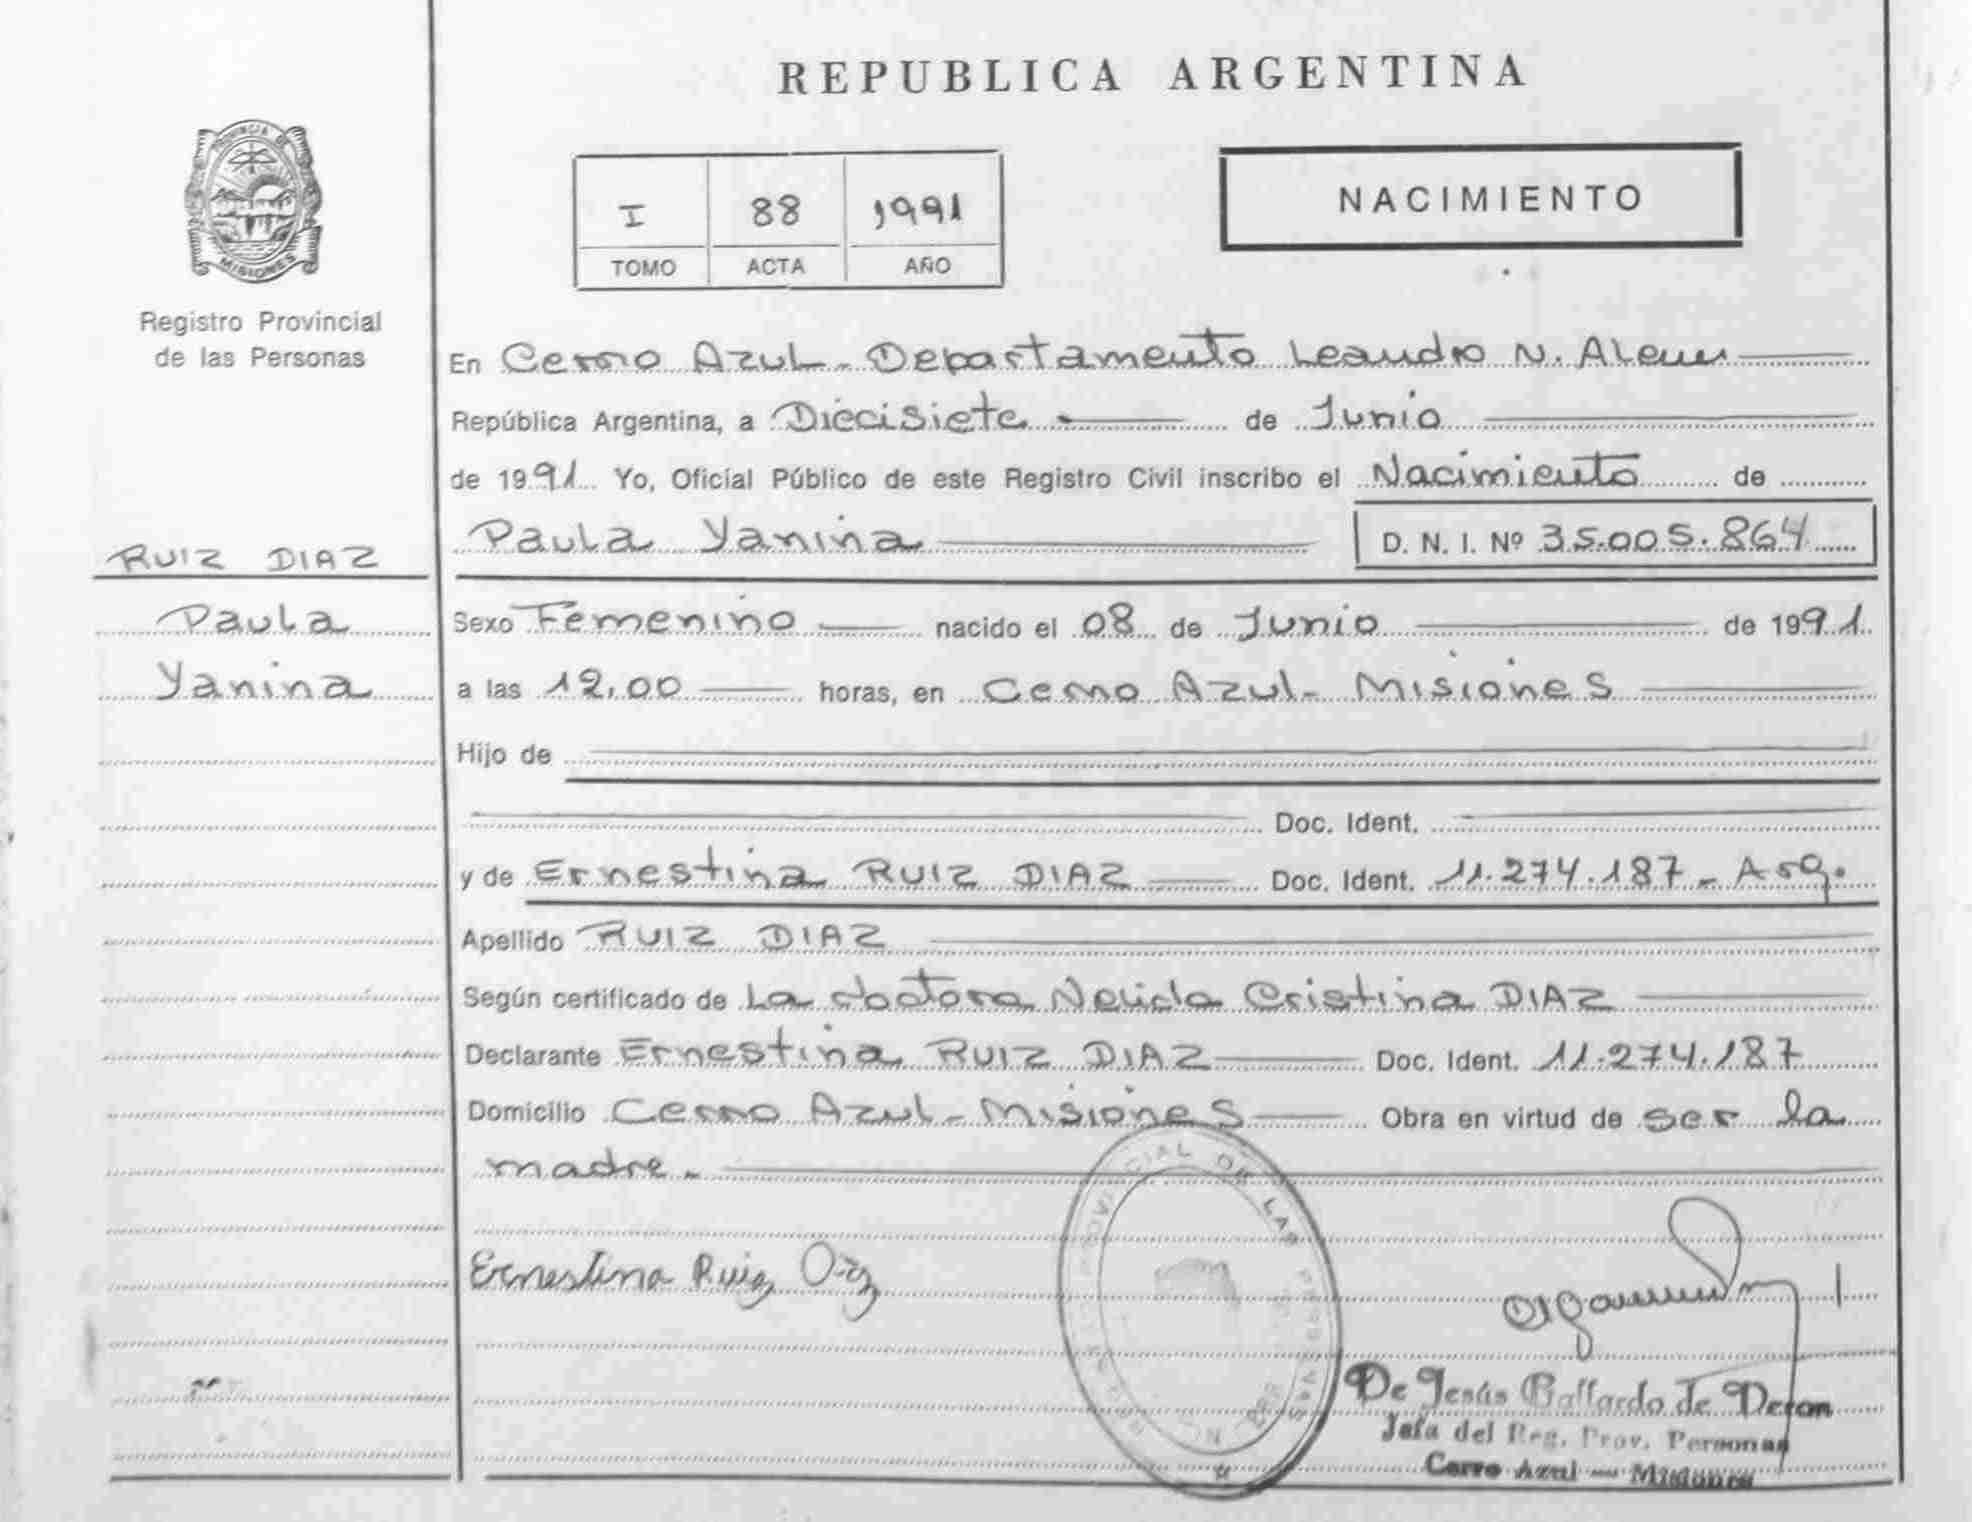 REPUBLICA ARGENTINA
PROVINCIA DE
MISIONES
Registro Provincial
de las Personas
I 88 1991
TOMO ACTA AÑO
NACIMIENTO
En Cerro Azul - Departamento Leandro N. Alem
República Argentina, a Diecisiete de Junio
de 1991 Yo, Oficial Público de este Registro Civil inscribo el Nacimiento de
Paula Yanina D. N. I. Nº 35.005.864
RUIZ DIAZ
Paula
Yanina
Sexo Femenino nacido el 08 de Junio de 1991
a las 12,00 horas, en Cerro Azul - Misiones
Hijo de
Doc. Ident.
y de Ernestina RUIZ DIAZ Doc. Ident. 11.274.187 - Arg.
Apellido RUIZ DIAZ
Según certificado de La doctora Nelida Cristina DIAZ
Declarante Ernestina RUIZ DIAZ Doc. Ident. 11.274.187
Domicilio Cerro Azul - Misiones Obra en virtud de ser la
madre.
Ernestina Ruiz Diaz
PROVINCIAL DE LAS PERSONAS
De Jesús Gallardo de Deron
Jefa del Reg. Prov. Personas
Cerro Azul — Misiones